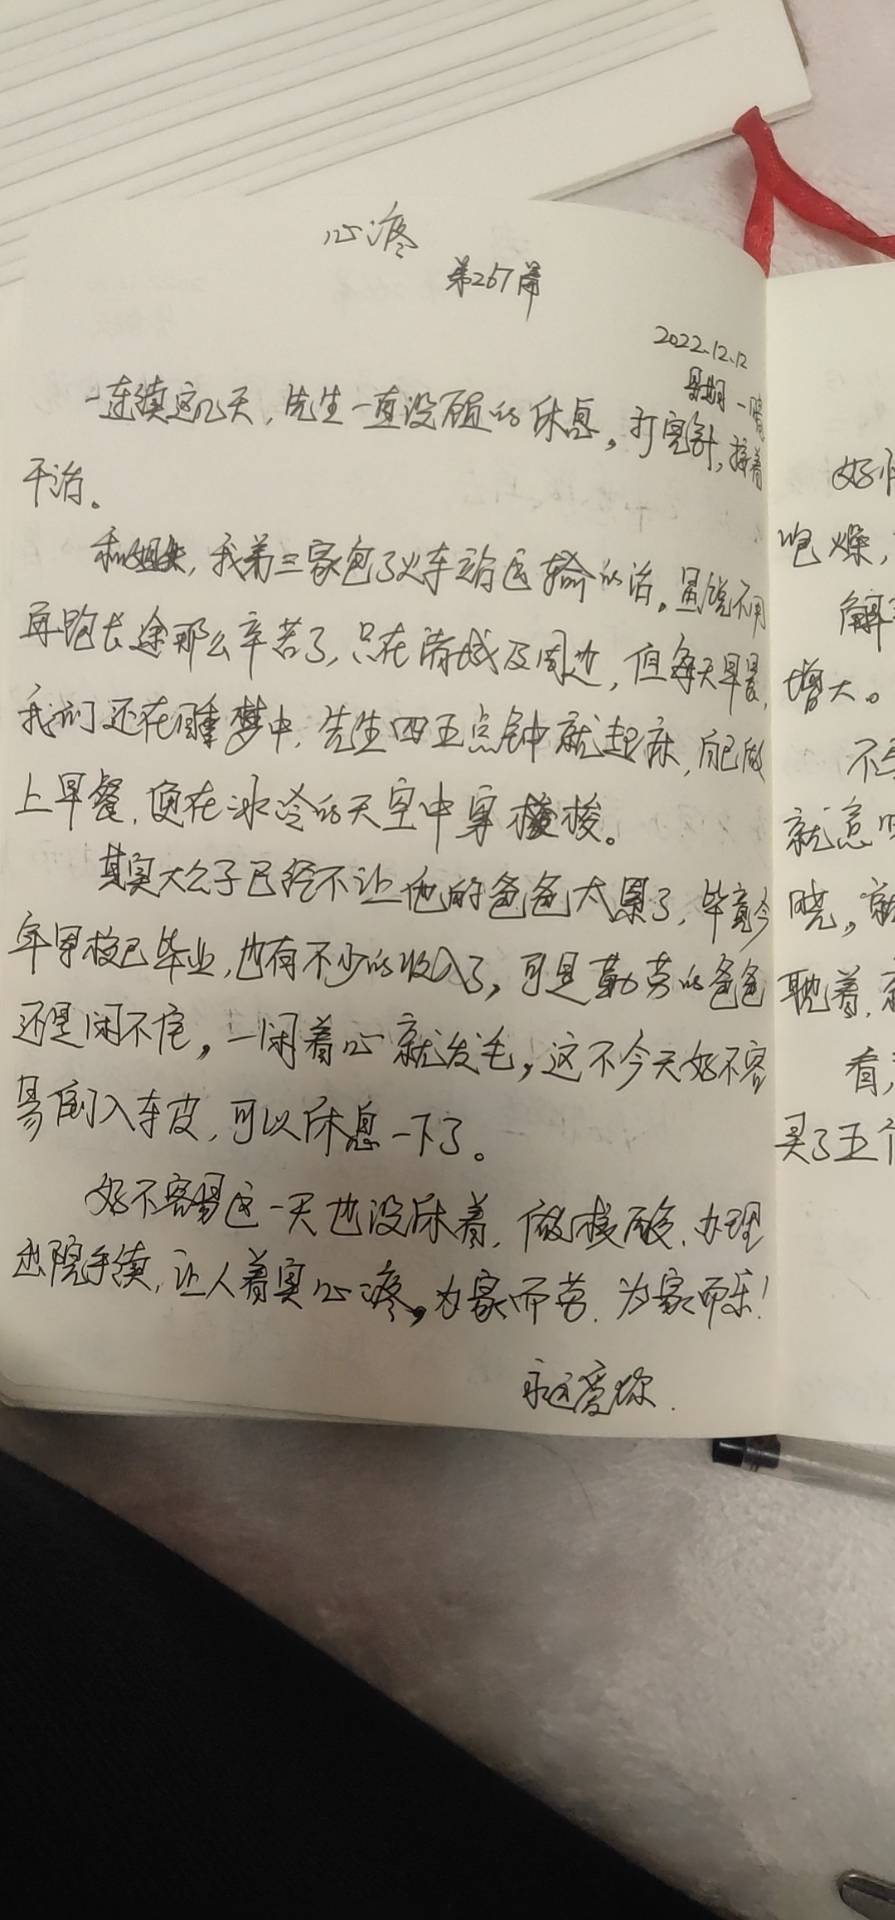 心疼
第267篇
2022.12.12
星期一 晴
一连续这几天，先生一直没顾的休息，打完针，接着
干活。
和姐夫，我弟三家包了火车站运输的活。虽说不用
再跑长途那么辛苦了，只在诸城及周边，但每天早晨，
我们还在睡梦中，先生四五点钟就起床，自己做
上早餐，便在冰冷的天空中穿梭。
其实大公子已经不让他的爸爸太累了，毕竟今
年军校已毕业，也有不少的收入了，可是勤劳的爸爸
还是闲不住，一闲着心就发毛，这不今天好不容
易倒入车皮，可以休息一下了。
好不容易这一天也没休着，做核酸、办理
出院手续，让人着实心疼，为家而劳，为家而乐！
永远爱你.
好
咆燥，
解
增大。
不
就怎
晓，就
耽着，
看，
买了五个